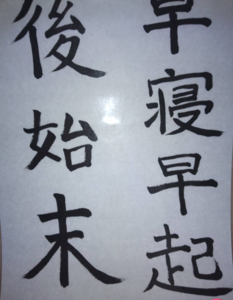 早寝早起
後始末